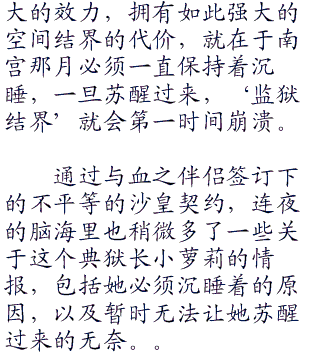 大的效力，拥有如此强大的
空间结界的代价，就在于南
宫那月必须一直保持着沉
睡，一旦苏醒过来，‘监狱
结界’就会第一时间崩溃。
通过与血之伴侣签订下
的不平等的沙皇契约，连夜
的脑海里也稍微多了一些关
于这个典狱长小萝莉的情
报，包括她必须沉睡着的原
因，以及暂时无法让她苏醒
过来的无奈。。